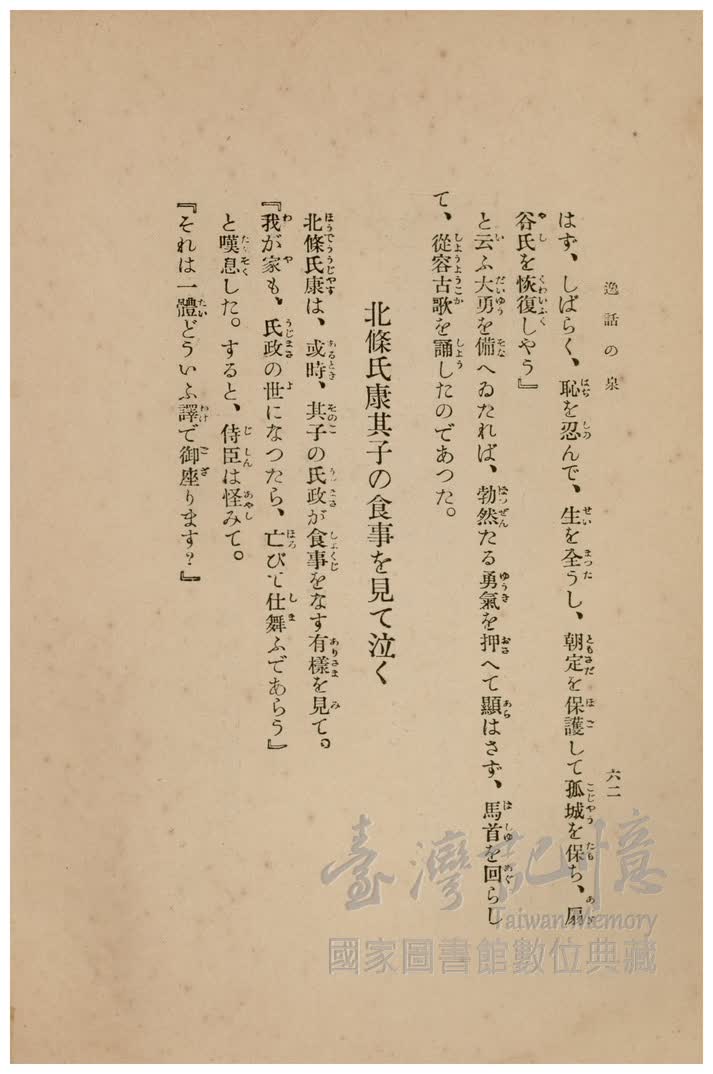 逸話の泉
六二
はず、しばらく、恥を忍んで、生を全うし、朝定を保護して孤城を保ち、扇
谷氏を恢復しやう』
と云ふ大勇を備へゐたれば、勃然たる勇氣を押へて顯はさず、馬首を回らし
て、從容古歌を誦したのであつた。
北條氏康其子の食事を見て泣く
北條氏康は、或時、其子の氏政が食事をなす有樣を見て。
『我が家も、氏政の世になつたら、亡びて仕舞ふであらう』
と嘆息した。すると、侍臣は怪みて。
『それは一體どういふ譯で御座ります？』
臺灣記憶
Taiwan Memory
國家圖書館數位典藏